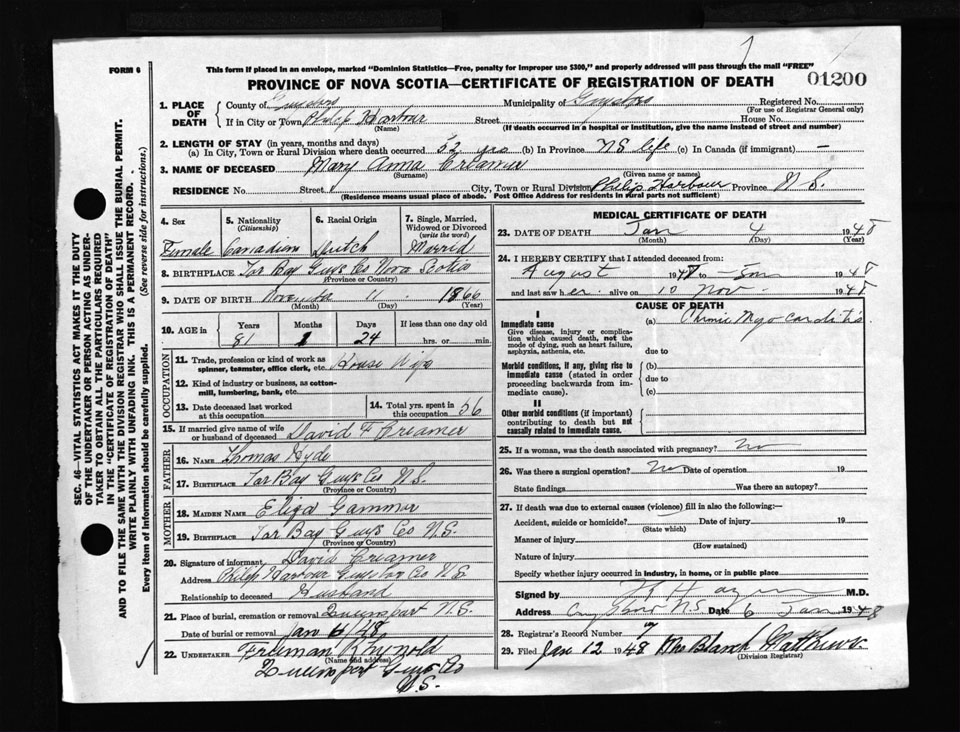 FORM 6
This form if placed in an envelope, marked "Dominion Statistics—Free, penalty for improper use $300," and properly addressed will pass through the mail "FREE"
PROVINCE OF NOVA SCOTIA—CERTIFICATE OF REGISTRATION OF DEATH
01200
1. PLACE OF DEATH
County of Guysboro Municipality of Guysboro Registered No.
(For use of Registrar General only)
If in City or Town Philip Harbour Street House No.
(Name) (If death occurred in a hospital or institution, give the name instead of street and number)
2. LENGTH OF STAY (in years, months and days)
(a) In City, Town or Rural Division where death occurred 52 yrs (b) In Province NS life (c) In Canada (if immigrant) —
3. NAME OF DECEASED Mary Anna Creamer
(Surname) (Given name or names)
RESIDENCE No. Street City, Town or Rural Division Philip Harbour Province N S.
(Residence means usual place of abode. Post Office Address for residents in rural parts not sufficient)
4. Sex
Female
5. Nationality
(Citizenship)
Canadian
6. Racial Origin
Dutch
7. Single, Married, Widowed or Divorced
(write the word)
Married
8. BIRTHPLACE Tor Bay Guys Co Nova Scotia
(Province or Country)
9. DATE OF BIRTH November 11 1866
(Month) (Day) (Year)
10. AGE in
Years Months Days If less than one day old
81 1 24 hrs. or min.
OCCUPATION
11. Trade, profession or kind of work as
spinner, teamster, office clerk, etc. House Wife
12. Kind of industry or business, as cotton-
mill, lumbering, bank, etc.
13. Date deceased last worked
at this occupation
14. Total yrs. spent in
this occupation 56
15. If married give name of wife
or husband of deceased David F Creamer
FATHER
16. NAME Thomas Hyde
17. BIRTHPLACE Tor Bay Guys Co N.S.
(Province or Country)
MOTHER
18. MAIDEN NAME Eliza Gammer
19. BIRTHPLACE Tor Bay Guys Co N.S.
(Province or Country)
20. Signature of informant David Creamer
Address Philip Harbour Guys Co N S
Relationship to deceased Husband
21. Place of burial, cremation or removal Queensport N.S.
Date of burial or removal Jan 6/48
22. UNDERTAKER Freeman Rhynold
(Name and address)
Queensport Guys Co
N.S.
MEDICAL CERTIFICATE OF DEATH
23. DATE OF DEATH Jan 4 1948
(Month) (Day) (Year)
24. I HEREBY CERTIFY that I attended deceased from:
August 1947 to Jan 1948
and last saw her alive on 10 Nov. 194
CAUSE OF DEATH
I
Immediate cause
Give disease, injury or complication which caused death, not the mode of dying, such as heart failure, asphyxia, asthenia, etc.
(a) Chronic Myocarditis
due to
Morbid conditions, if any, giving rise to immediate cause (stated in order proceeding backwards from immediate cause).
(b)
due to
(c)
II
Other morbid conditions (if important) contributing to death but not causally related to immediate cause.
25. If a woman, was the death associated with pregnancy? No
26. Was there a surgical operation? No Date of operation 19
State findings Was there an autopsy?
27. If death was due to external causes (violence) fill in also the following:—
Accident, suicide or homicide? Date of injury 19
(State which)
Manner of injury
(How sustained)
Nature of injury
Specify whether injury occurred in industry, in home, or in public place
Signed by M.D.
Address Guysboro NS Date 6 Jan 1948
28. Registrar's Record Number
29. Filed Jan 12 1948 Mrs Blanch Matthews.
(Division Registrar)
SEC. 46—VITAL STATISTICS ACT MAKES IT THE DUTY
OF THE UNDERTAKER OR PERSON ACTING AS UNDER-
TAKER TO OBTAIN ALL THE PARTICULARS REQUIRED
IN THE "CERTIFICATE OF REGISTRATION OF DEATH"
AND TO FILE THE SAME WITH THE DIVISION REGISTRAR WHO SHALL ISSUE THE BURIAL PERMIT.
WRITE PLAINLY WITH UNFADING INK. THIS IS A PERMANENT RECORD.
Every Item of Information should be carefully supplied. (See reverse side for instructions.)